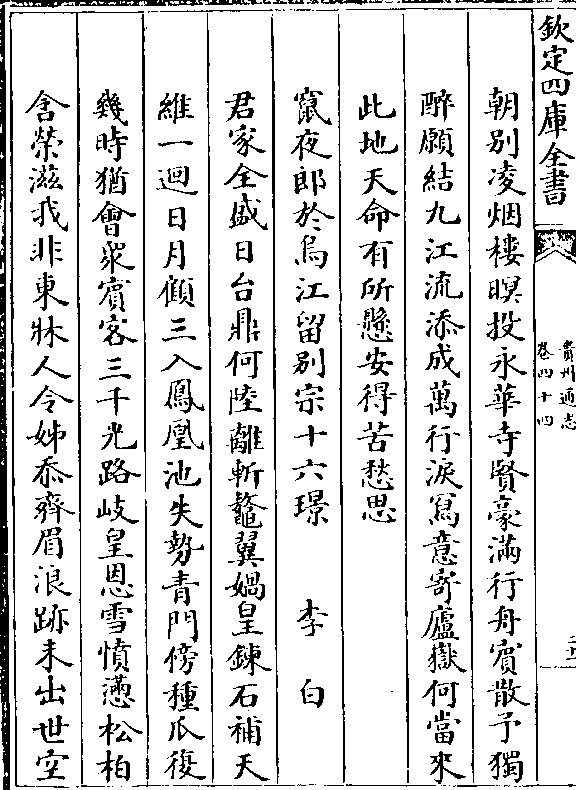 欽定四庫全書
貴州通志
卷四十四
朝别凌烟樓暝投永華寺賢豪滿行舟賔散予獨
醉願結九江流添成萬行淚寫意寄廬嶽何當來
此地天命有所懸安得苦愁思
竄夜郎於烏江留别宗十六璟 李白
君家全盛日台鼎何陸離斬鼇翼媧皇鍊石補天
維一迴日月顧三入鳳凰池失勢青門傍種瓜復
幾時猶會衆賔客三千光路岐皇恩雪憤懣松柏
含榮滋我非東牀人令姊忝齊眉浪跡未出世空